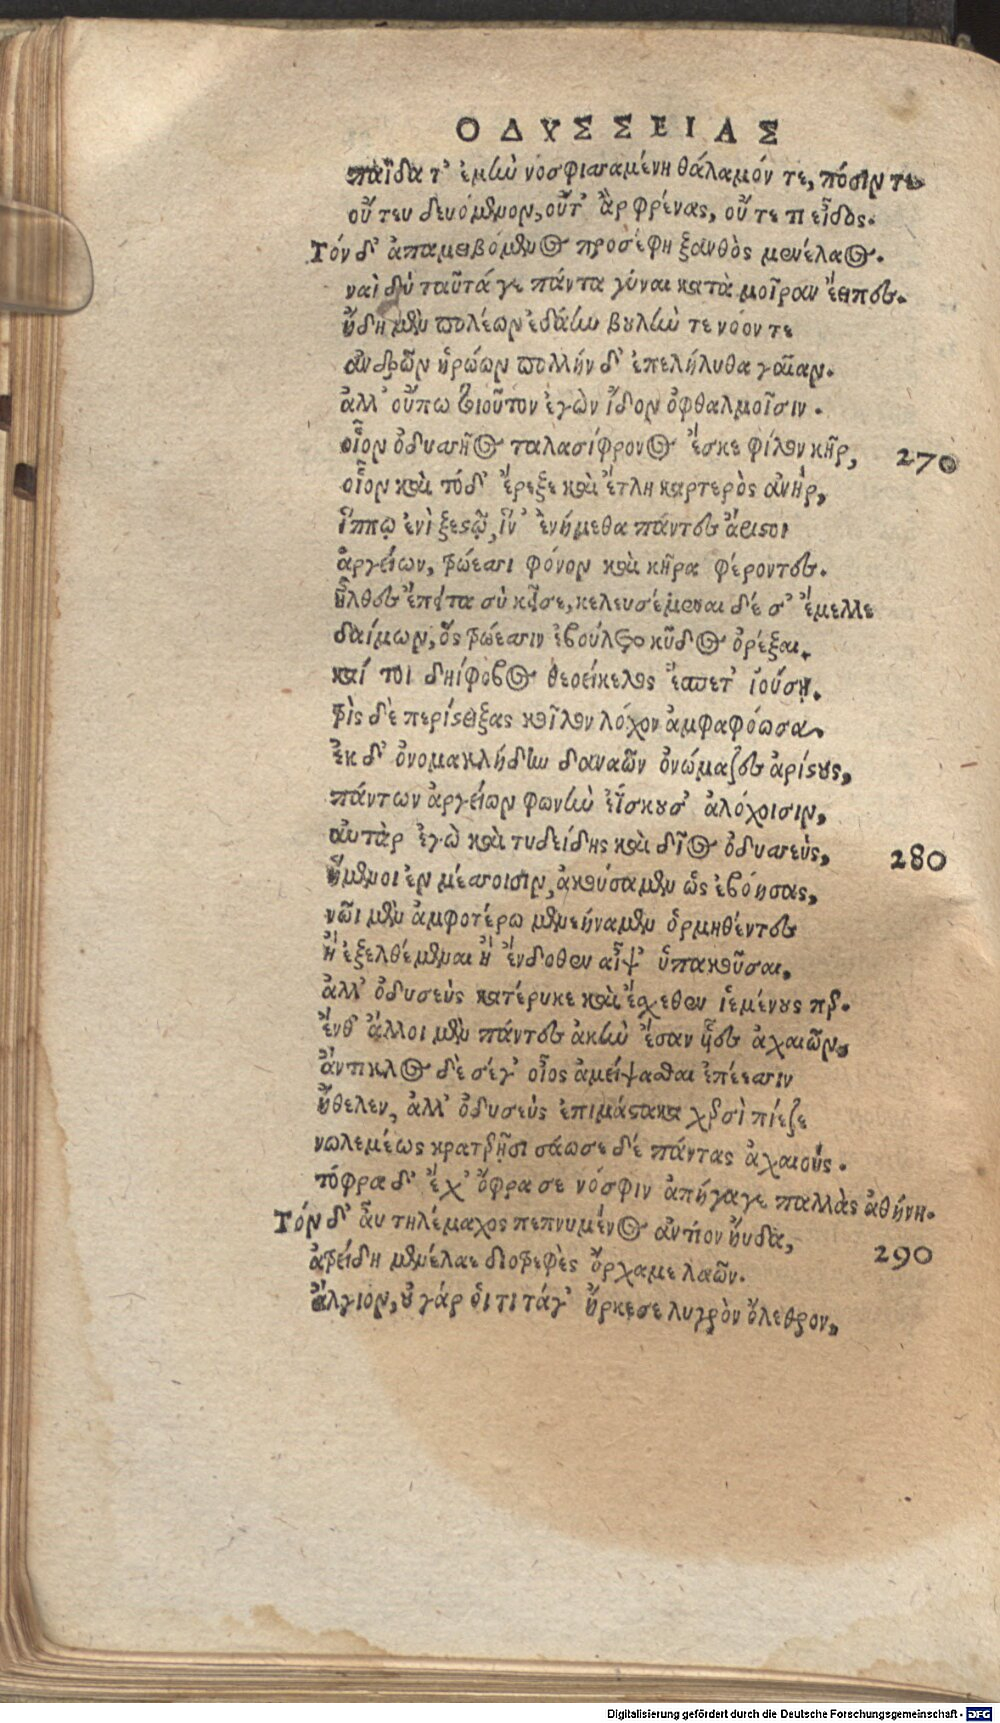 ΟΔΥΣΣΕΙΑΣ
παῖδα τ' ἐμὴν νοσφισσαμένη θάλαμόν τε, πόσιν τε
οὔ τευ δευόμενον, οὔτ' ἂρ φρένας, οὔ τε τι εἶδος.
Τόν δ' ἀπαμειβόμενος προσέφη ξανθὸς μενέλαος.
ναὶ δὴ ταῦτά γε πάντα γύναι κατὰ μοῖραν ἔειπες.
ἤδη μὲν πολέων ἐδάην βουλήν τε νόον τε
ἀνδρῶν ἡρώων πολλήν δ' ἐπελήλυθα γαῖαν.
ἀλλ' οὔπω τοιοῦτον ἐγὼν ἴδον ὀφθαλμοῖσιν.
οἷον ὀδυσσῆος ταλασίφρονος ἔσκε φίλον κῆρ,
270
οἷον καὶ τόδ' ἔρεξε καὶ ἔτλη καρτερὸς ἀνὴρ,
ἵππῳ ἐνὶ ξεστῷ, ἵν' ἐνήμεθα πάντες ἄριστοι
ἀργείων, τρώεσσι φόνον καὶ κῆρα φέροντες.
ἦλθες ἔπειτα σὺ κεῖσε, κελευσέμεναι δέ σ' ἔμελλε
δαίμων, ὃς τρώεσσιν ἐβούλετο κῦδος ὀρέξαι.
καί τοι δηίφοβος θεοείκελος ἕσπετ' ἰούσῃ.
τρὶς δὲ περίστειξας κοῖλον λόχον ἀμφαφόωσα.
ἐκ δ' ὀνομακλήδην δαναῶν ὀνώμαζες ἀρίστους,
πάντων ἀργείων φωνὴν ἐΐσκουσ' ἀλόχοισιν,
αὐτὰρ ἐγὼ καὶ τυδείδης καὶ δῖος ὀδυσσεὺς,
280
ἥμενοι ἐν μέσσοισιν, ἀκούσαμεν ὡς ἐβόησας,
νῶι μὲν ἀμφοτέρω μενεήναμεν ὁρμηθέντες
ἢ ἐξελθέμεναι ἢ ἔνδοθεν αἶψ' ὑπακοῦσαι.
ἀλλ' ὀδυσεὺς κατέρυκε καὶ ἔσχεθεν ἱεμένους περ.
ἔνθ' ἄλλοι μὲν πάντες ἀκὴν ἔσαν υἷες ἀχαιῶν,
ἄντικλος δὲ σέγ' οἶος ἀμείψασθαι ἐπέεσσιν
ἤθελεν, ἀλλ' ὀδυσεὺς ἐπιμάστακα χερσὶ πίεζε
νωλεμέως κρατερῇσι σάωσε δέ πάντας ἀχαιούς.
τόφρα δ' ἔχ' ὄφρα σε νόσφιν ἀπήγαγε παλλὰς ἀθήνη.
Τόν δ' αὖ τηλέμαχος πεπνυμένος ἀντίον ηὔδα,
290
ἀτρείδη μενέλαε διοτρεφὲς ὄρχαμε λαῶν.
ἄλγιον, οὐ γάρ ὁι τι τάγ' ἤρκεσε λυγρὸν ὄλεθρον,
Digitalisierung gefördert durch die Deutsche Forschungsgemeinschaft - DFG